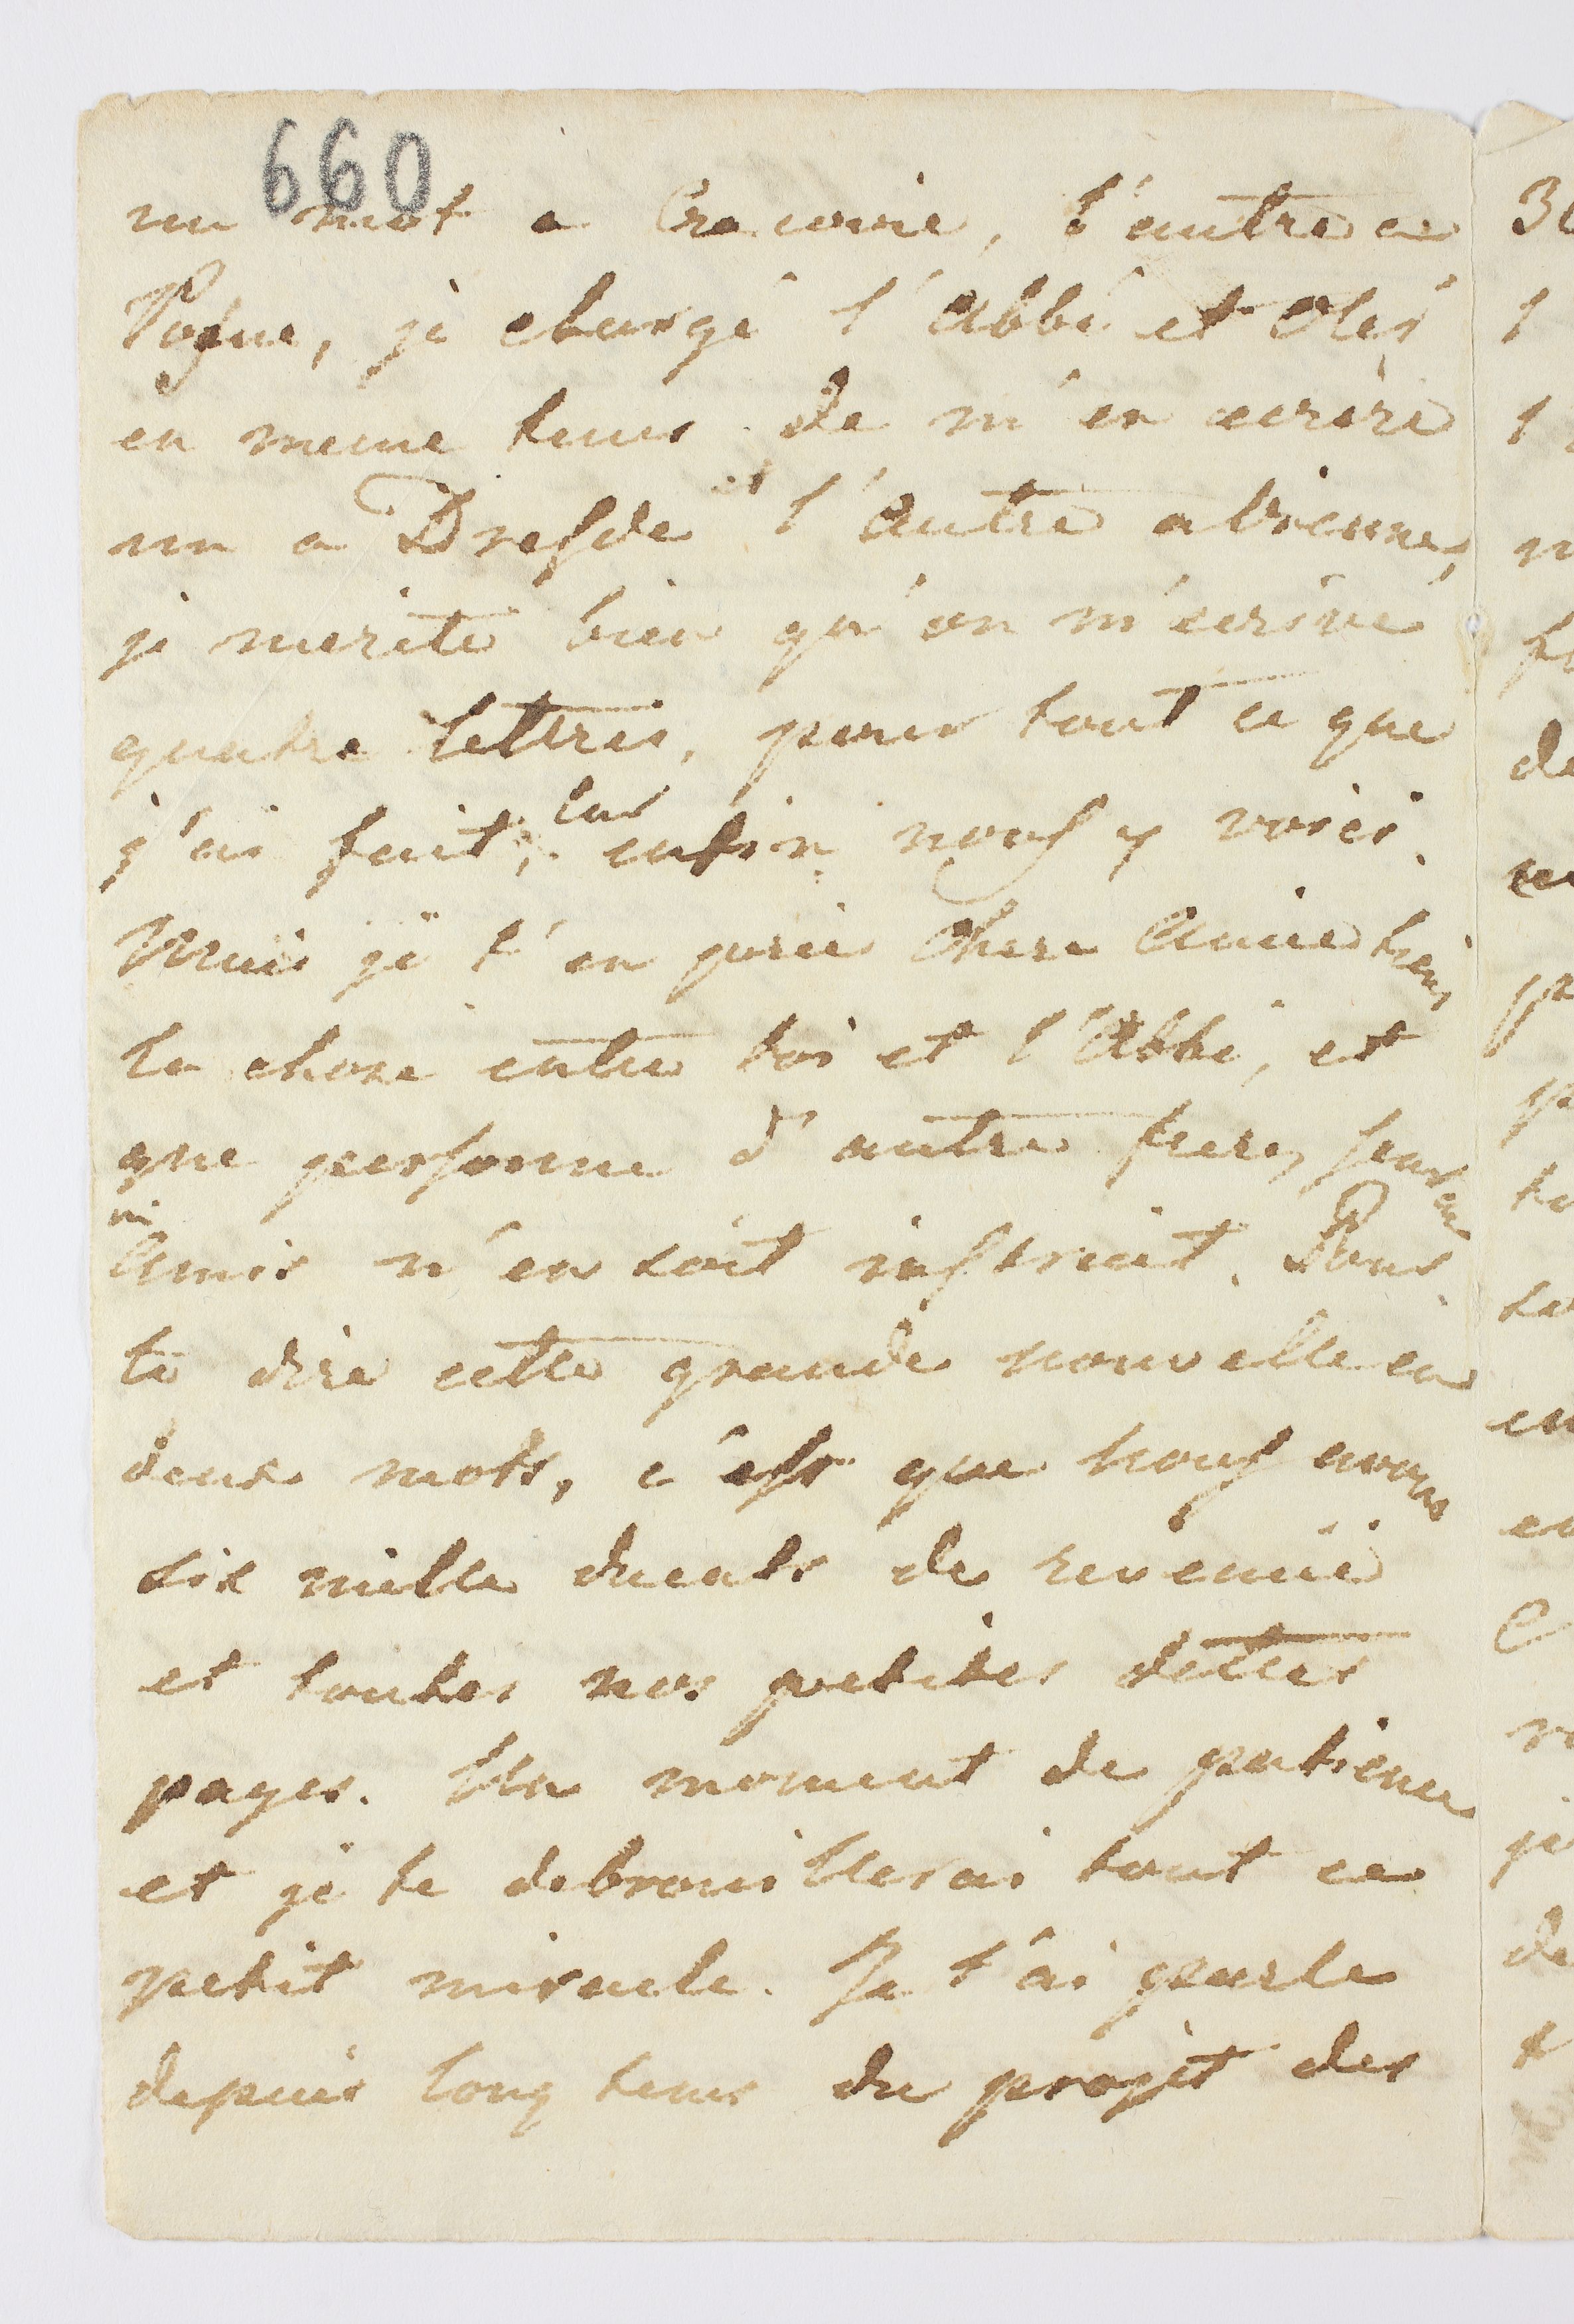 660
un mot a Cracovie, l'autre a
Posne, je charge l'Abbé et Oleś
en meme tems de m'en ecrire
un a Dresde et l'autre a Vienne,
je merite bien qu'on m'ecrive
quatre lettres, pour tout ce que
j'ai fait, car enfin nous y voici.
Mais je t'en prie Chere Amie tiens
la chose entre toi et l'Abbé, et
que personne d'autre frere, sœur ou
ni
Amis n'en soit instruit. Pour
te dire cette grande nouvelle en
deux mots, c'est que nous avons
six mille ducats de revenüe
et toutes nos petites dettes
payes. Un moment de patience
et je te debrouillerai tout ce
petit miracle. Je t'ai parle
depuis long tems du projet des